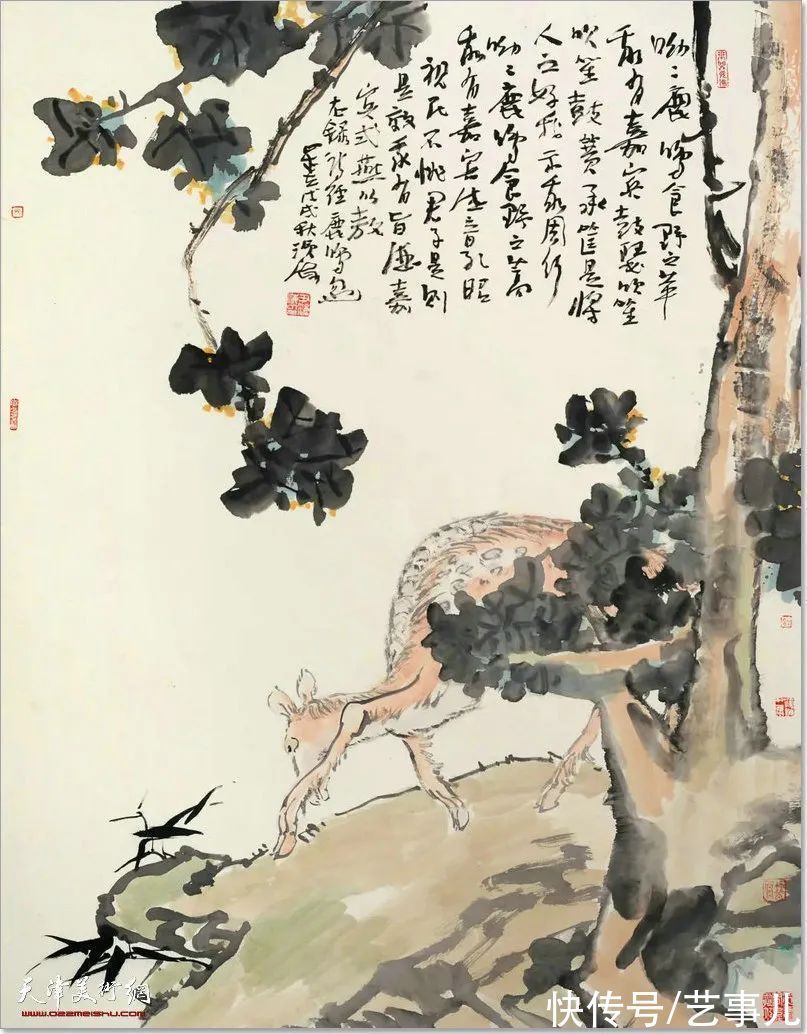 呦〻鹿鸣食野之苹
我有嘉宾鼓瑟吹笙
吹笙鼓簧承筐是将
人之好我示我周行
呦〻鹿鸣食野之蒿
我有嘉宾德音孔昭
视民不恌君子是则
是效我有旨酒嘉
宾式燕以敖
右录诗经鹿鸣句
戊戌秋
天津美術網
www.022meishu.com
快传号/艺事儿